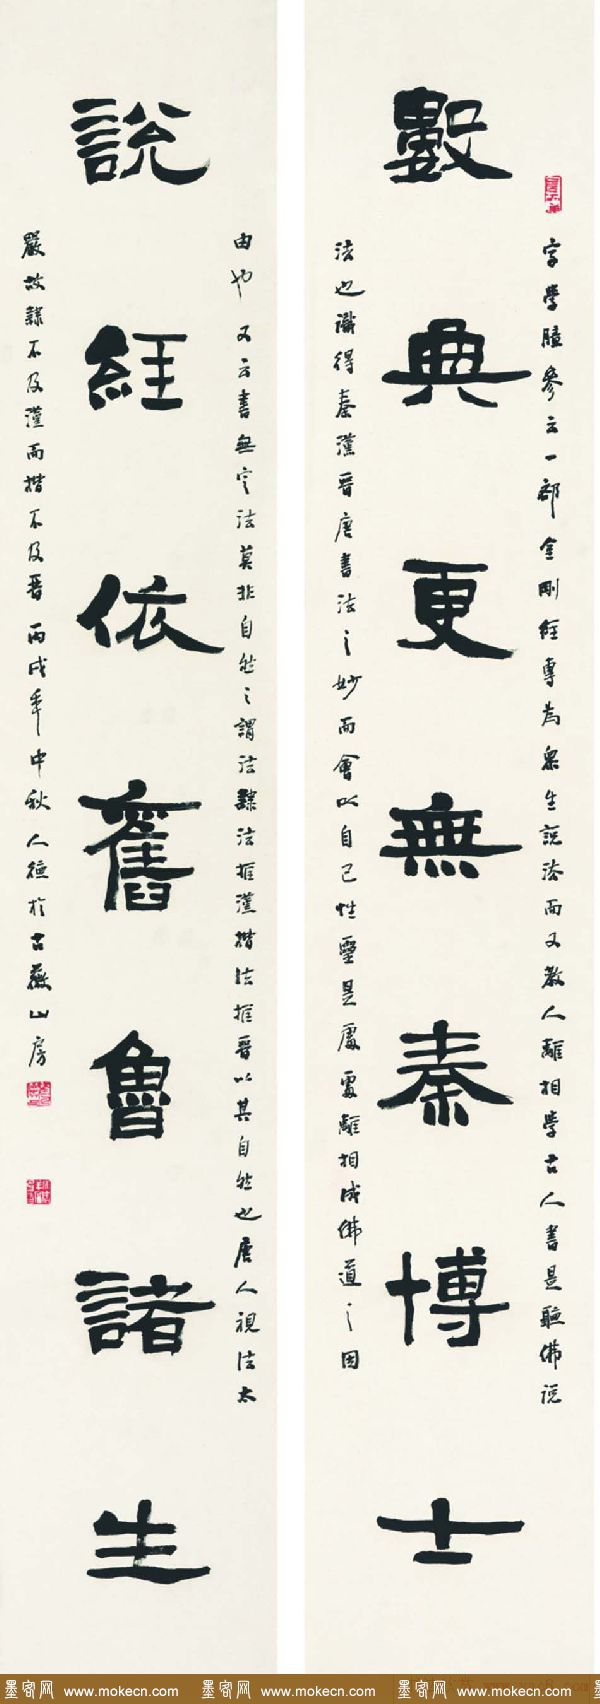 數典更無秦博士
字學臆參云一部金剛經專為眾生說法而又教人離相學古人書是聽佛說
法也識得秦漢晉唐書法之妙而會以自己性靈是處處離相成佛道之因
說經依舊魯諸生
由也又云書無定法莫非自然之謂法隸法推漢楷法推晉以其自然也唐人視法太
嚴故隸不及漢而楷不及晉丙戌年中秋人德於古燕山房
墨客网 www.mokecn.com 墨客网 www.mokecn.com 墨客网 www.mokecn.com